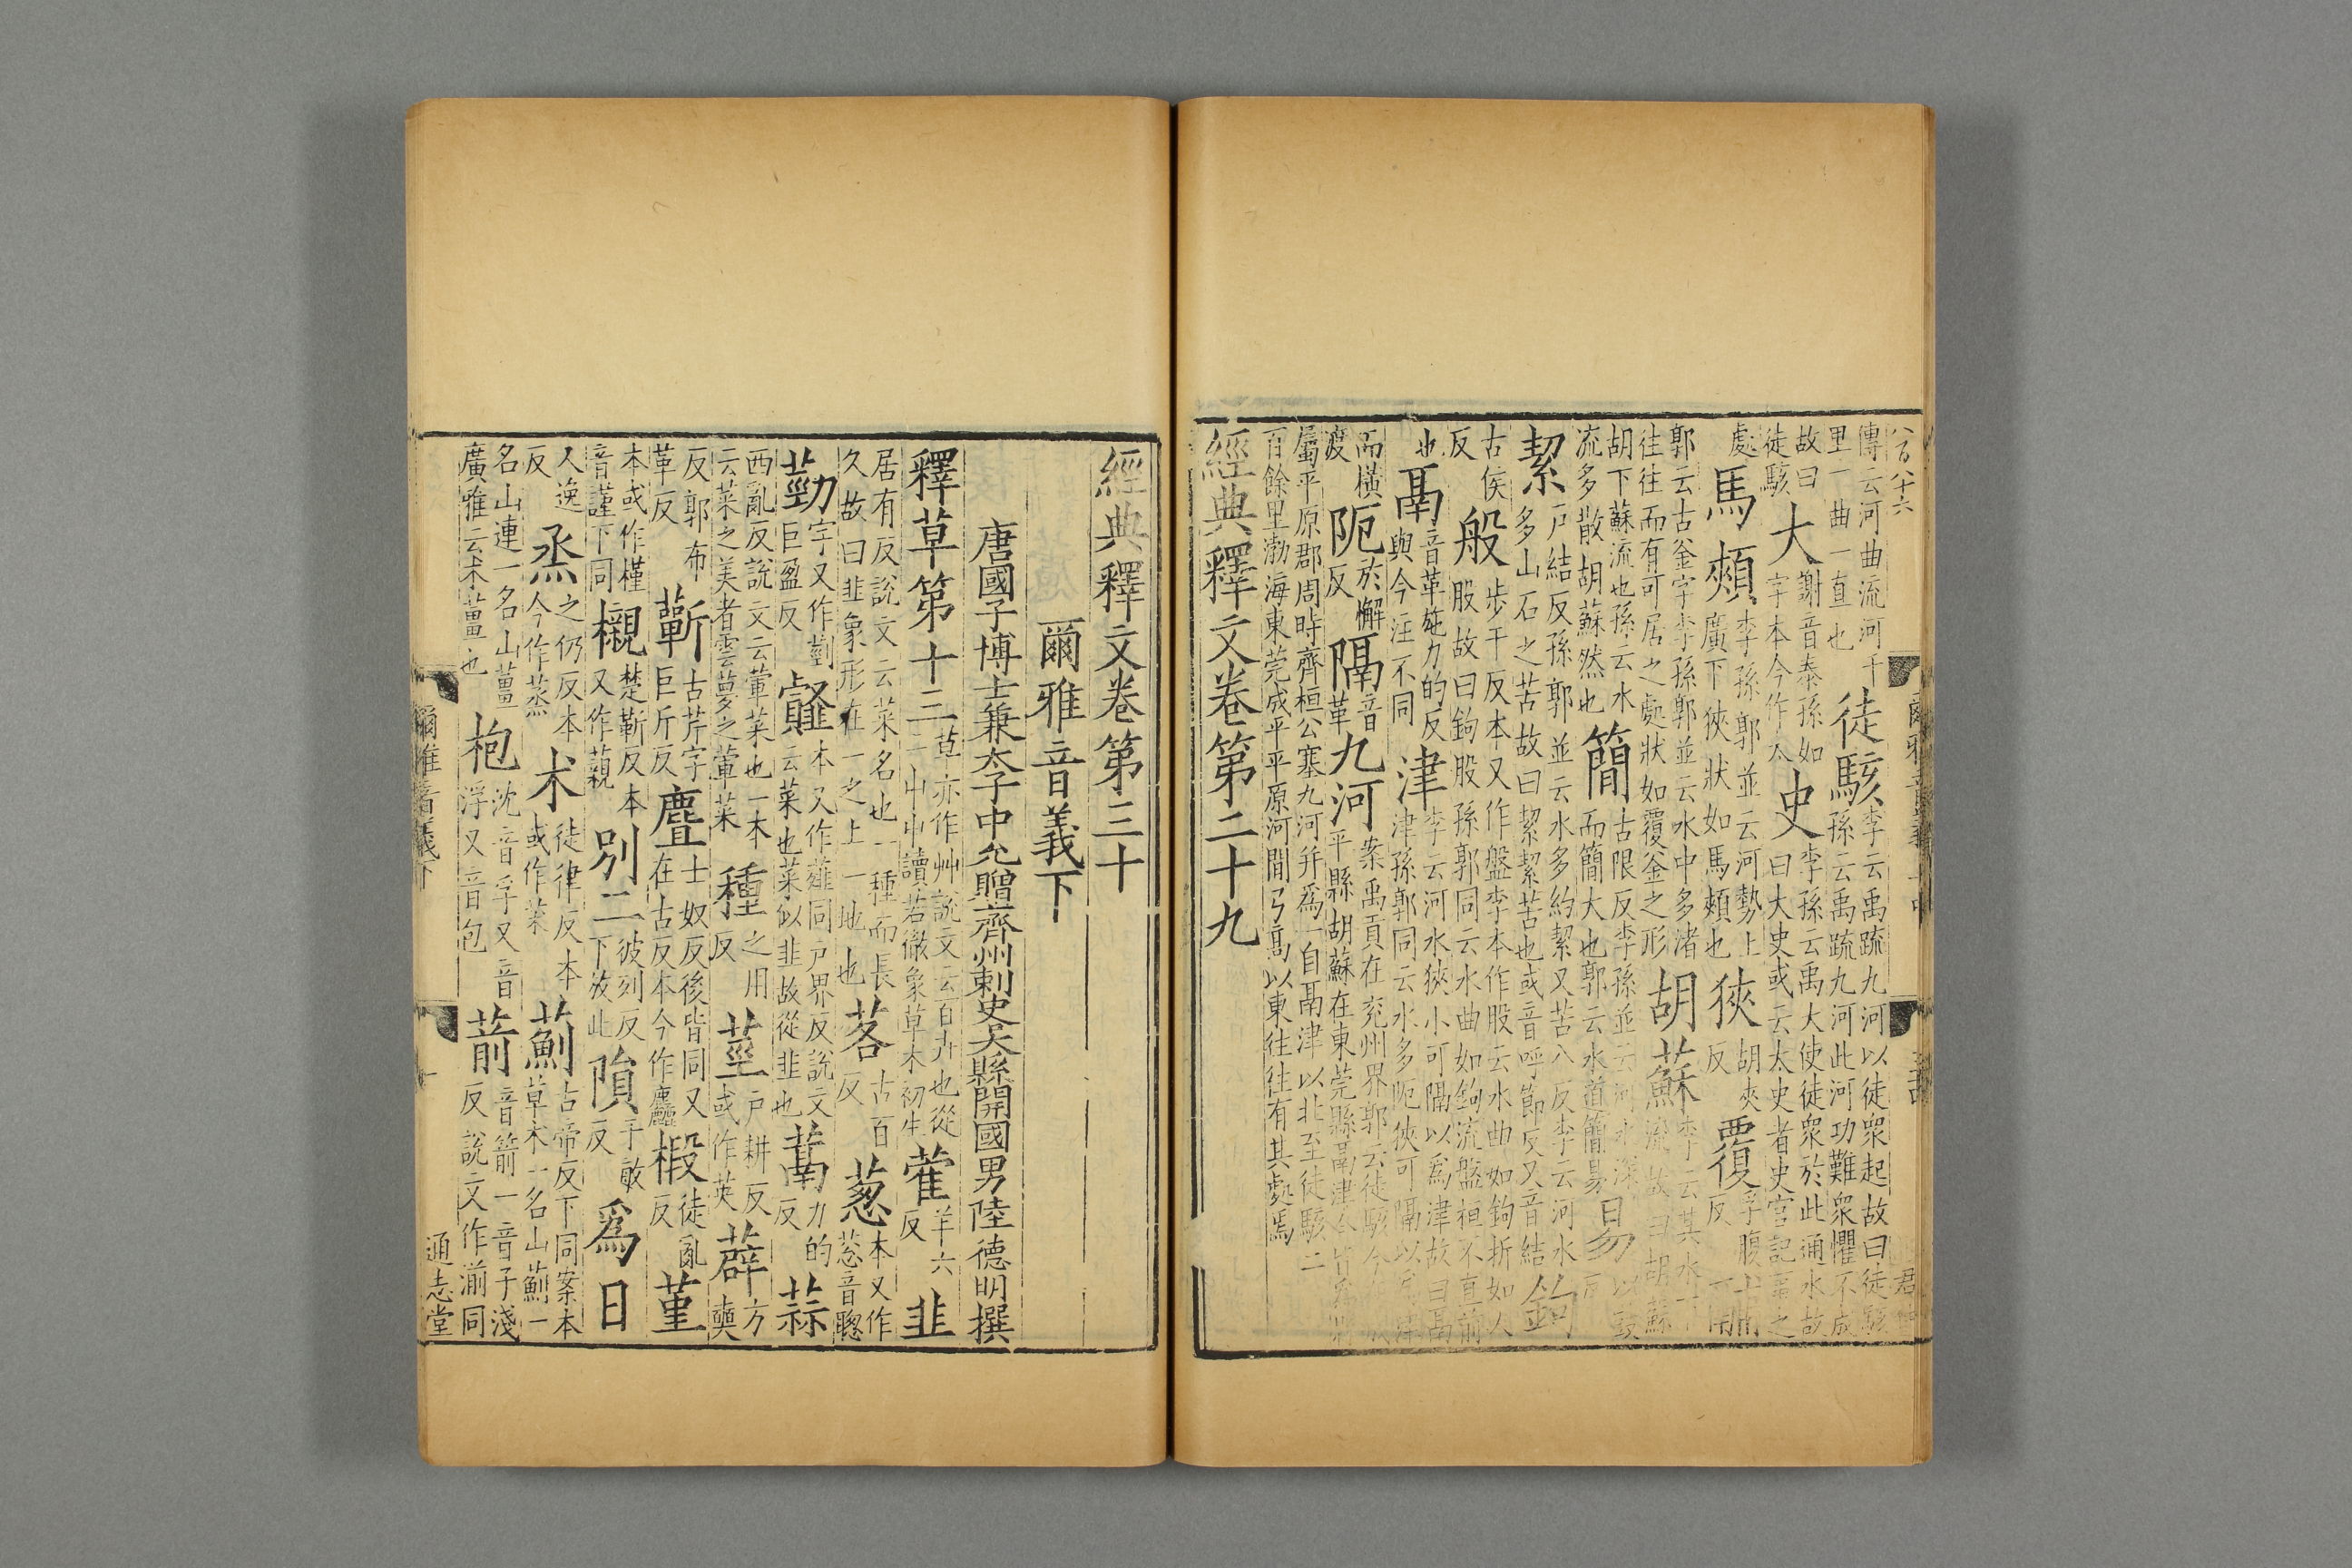 八百八十六
傳云河曲流河千
里一曲一直也
徒駭
李云禹疏九河以徒衆起故曰徒駭
孫云禹疏九河此河功難衆懼不成
故曰
徒駭
大
謝音泰孫如
字本今作太
史
李孫云禹大使徒衆於此通水故
曰大史或云太史者史官記事之
處
馬頰
李孫郭並云河勢上
廣下狹狀如馬頰也
狹
胡夾
反
覆
孚腹
反
郭云古釜字李孫郭並云水中多渚
往往而有可居之處狀如覆釜之形
胡蘇
李云其水下
流故曰胡蘇
胡下蘇流也孫云水
流多散胡蘇然也
簡
古限反李孫並云河水深
而簡大也郭云水道簡易
易
以豉
反
絜
戸結反孫郭並云水多約絜又苦八反李云河水
多山石之苦故曰絜絜苦也或音呼節反又音結
鉤
古侯
反
般
步干反本又作盤李本作股云水曲如鉤折如人
股故曰鉤股孫郭同云水曲如鉤流盤桓不直前
也
鬲
音革施力的反
與今注不同
津
李云河水狹小可隔以爲津故曰鬲
津孫郭同云水多阨狹可隔以爲津
而橫
渡
阨
於懈
反
隔
音
革
九河
案禹貢在兖州界郭云徒駭今
平縣胡蘇在東莞縣鬲津今皆爲縣
屬平原郡周時齊桓公塞九河并爲一自鬲津以北至徒駭二
百餘里渤海東莞成平平原河間弓高以東往往有其處焉
經典釋文卷第二十九
經典釋文卷第三十
爾雅音義下
唐國子博士兼太子中允贈齊州刺史吳縣開國男陸德明撰
釋草第十三
草亦作艸說文云百卉也從
二屮屮讀若徹象草木初生
蒮
羊六
反
韭
居有反說文云菜名也一種而長
久故曰韭象形在一之上一地也
茖
古百
反
葱
本又作
䓗音聰
葝
字又作䓶
巨盈反
䪥
本又作薤同戸界反說文
云菜也菜似韭故從韭也
蒚
力的
反
蒜
西亂反說文云葷菜也一本
云菜之美者雲夢之葷菜
種
之用
反
莖
戸耕反
或作英
薜
方
奭
反郭布
革反
蘄
古芹字
巨斤反
麆
士奴反後皆同又
在古反本今作麤
椴
徒亂
反
堇
本或作槿
音謹下同
櫬
楚靳反本
又作藽
別二
彼列反
下放此
隕
于敏
反
爲日
人逸
反
烝
之仍反本
今作蒸
术
徒律反本
或作荗
薊
古帝反下同案本
草木一名山薊一
名山連一名山薑
廣雅云术薑也
枹
沈音孚又音
浮又音包
葥
音箭一音子淺
反說文作湔同
爾雅音義下
一
通志堂